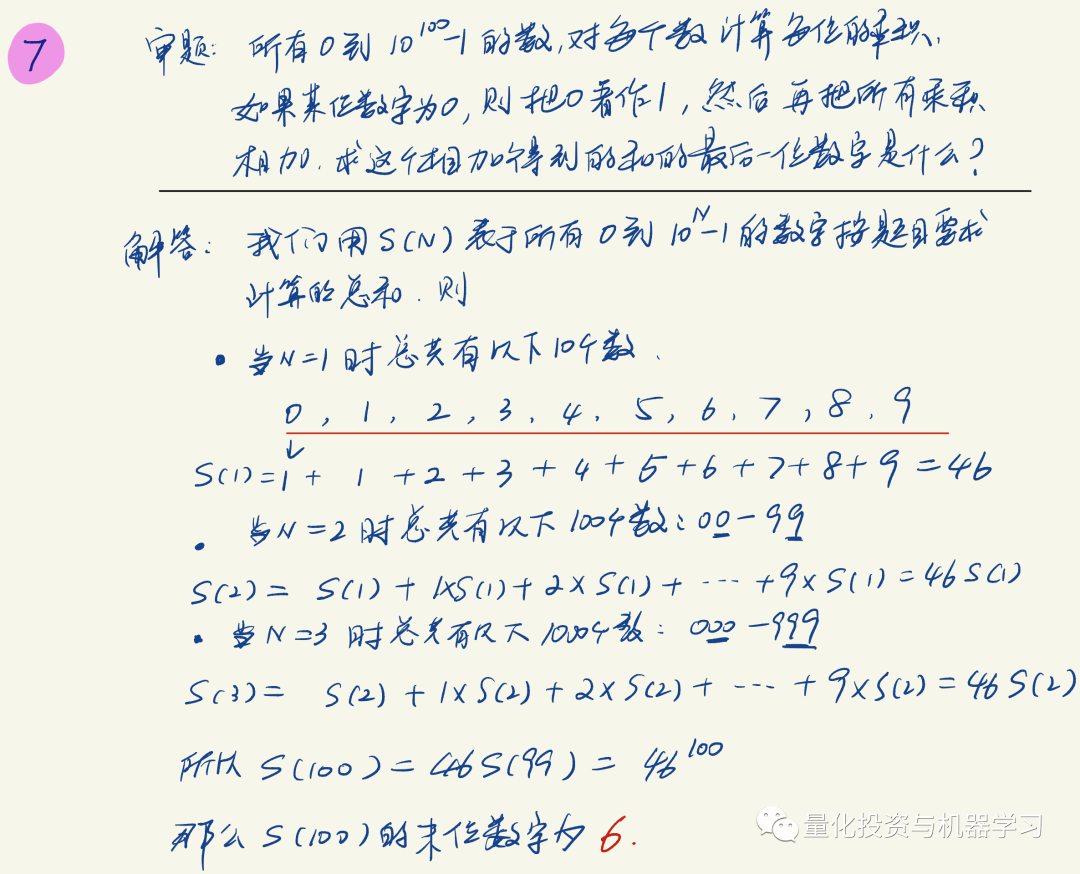 7
审题: 所有0到10^100-1的数,对每个数计算每位的乘积,
如果某位数字为0,则把0看作1,然后再把所有乘积
相加.求这个相加得到的和的最后一位数字是什么?
解答: 我们用S(N)表示所有0到10^N-1的数字按题目要求
计算的总和.则
• 当N=1时总共有以下10个数.
0, 1, 2, 3, 4, 5, 6, 7, 8, 9
↓
S(1)=1+ 1 +2+3+4+5+6+7+8+9=46
• 当N=2时总共有以下100个数:00-99
S(2)= S(1)+1×S(1)+2×S(1)+ ··· +9×S(1)=46S(1)
• 当N=3时总共有以下1000个数: 000-999
S(3)= S(2)+1×S(2)+2×S(2)+ ··· +9×S(2)=46S(2)
所以 S(100)=46S(99)= 46^100
那么 S(100)的末位数字为 6.
量化投资与机器学习